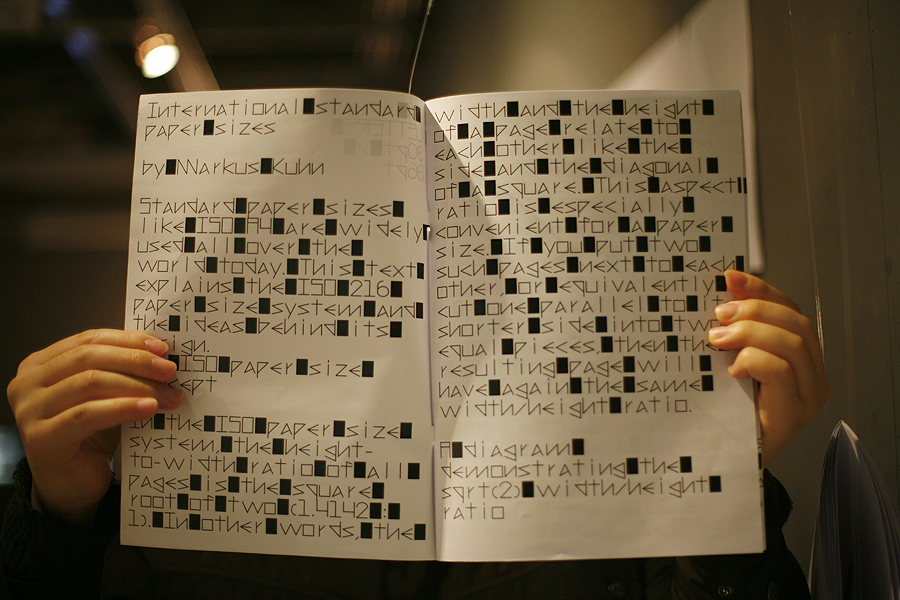 International standard
paper sizes
by Markus Kuhn
Standard paper sizes
like ISO A4 are widely
used all over the
world today. This text
explains the ISO 216
paper size system and
the ideas behind its
ign.
ISO paper size
cept
In the ISO paper size
system, the height-
to-width ratio of all
pages is the square
root of two (1.4142 :
1). In other words, the
width and the height
of a page relate to
each other like the
side and the diagonal
of a square. This aspect
ratio is especially
convenient for a paper
size. If you put two
such pages next to each
other, or equivalently
cut one parallel to its
shorter side into two
equal pieces, then the
resulting page will
have again the same
width/height ratio.
A diagram
demonstrating the
sqrt(2) width/height
ratio